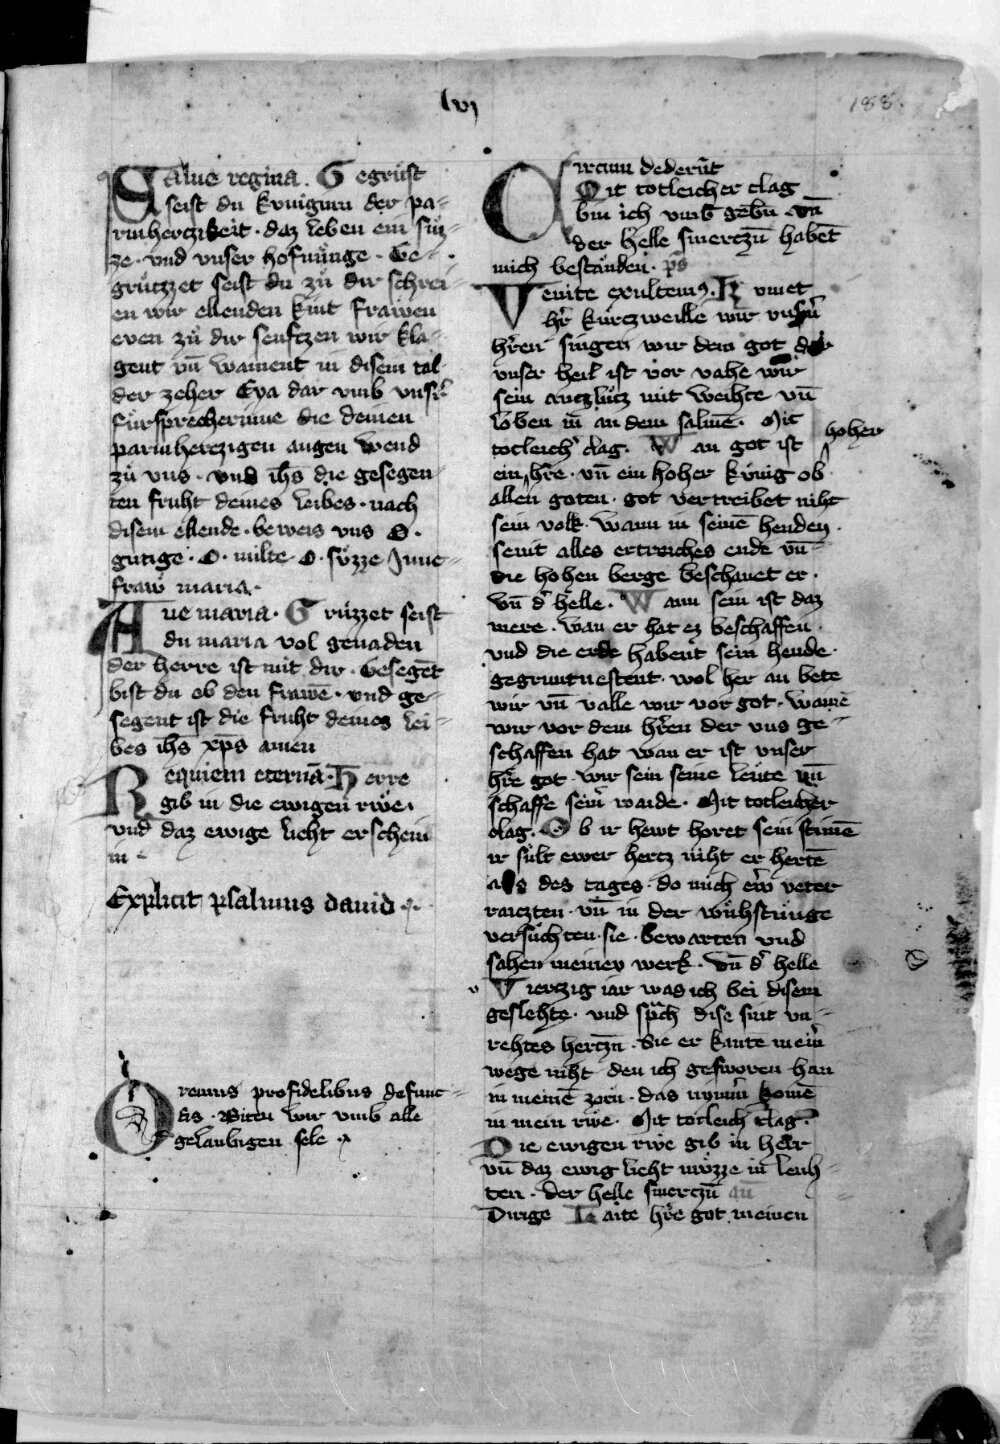 lvj
188.
Salve regina. Gegrüst
seist du kuniginn der par-
minherczikeit · daz leben ein süz-
ze · vnd vnser hofnunge · Ge-
grützzet seist du zů dir schrei-
en wir ellenden kint frawen
even zů dir seuftzen wir kla-
gent vn̄ wainent in disem tal
der zeher Eya dar vmb vnsr̄
fürsprecherinne die deinen
parmherczigen augen wend
zů vns · vnd ih̄s die gesegen-
ten fruht deines leibes · nach
disem ellende · beweis vns O ·
gutige · O · milte · O · süzze Junc-
fraw maria ·
Aue maria · Grüzzet seist
du maria vol genaden
der herre ist mit dir · Gesegēt
bist du ob den frawē · vnd ge-
segent ist die fruht deines lei-
bes ih̄s xp̄s amen
Requiem eternā · Herre
gib in die ewigen rwe ·
vnd daz ewige lieht erschein
in
Explicit psalmus dauid
Oremus profidelibus defunc-
tis · Biten wir vmb alle
gelaubigen sele
Circum dederūt
Mit totleicher clag
bin ich vmb gebn̄ · vn̄
der helle smerczn̄ habēt
mich bestanden · ps̄
Venite exultem9 · Kumet
hr̄ kurczweille wir vnsn̄
hr̄en singen wir dem got der
vnser heil ist vor vahe wir
sein antzlütz mit weihte vn̄
loben in̄ an dem salmē · Mit
totleich̄ clag · Wan got ist
hoher
ein hr̄e · vn̄ ein hoher kunig ob
allen goten · got vertreibet niht
sein volk · wann in seinē henden ·
seint alles ertreiches ende vn̄
die hohen berge beschauet er ·
vn̄ d̄ helle · Wann sein ist daz
mere · wan er hat ez beschaffen ·
vnd die erde habent sein hende ·
gegruntuestent · wol her an bete
wir vn̄ valle wir vor got · wainē
wir vor dem hr̄en der vns ge-
schaffen hat wan er ist vnser
hr̄e got · wir sein seine leute vn̄
schaffe sein̄ waide · Mit totleicher
clag · Ob ir hewt horet sein stimē
ir sült ewer hertz niht er hertē
als des tages · do mich ew̄ veter
raiczten · vn̄ in der wühstunge
versuchten · sie · bewarten vnd
sahen meinev werk · Vn̄ d̄ helle
Vierczig iar was ich bei disem
geslehte · vnd sp̄ch dise sint vn-
rehtes herczn̄ · Sie er kantē mein̄
wege niht den ich gesworen han
in meinē zorn · das nymm̄ komē
in mein rwe · Mit totleich clag ·
Die ewigen rwe gib in herr
vn̄ daz ewig lieht müzze in leuh-
ten · der helle smerczn̄ an̄
Dirige Laite hr̄e got meinen